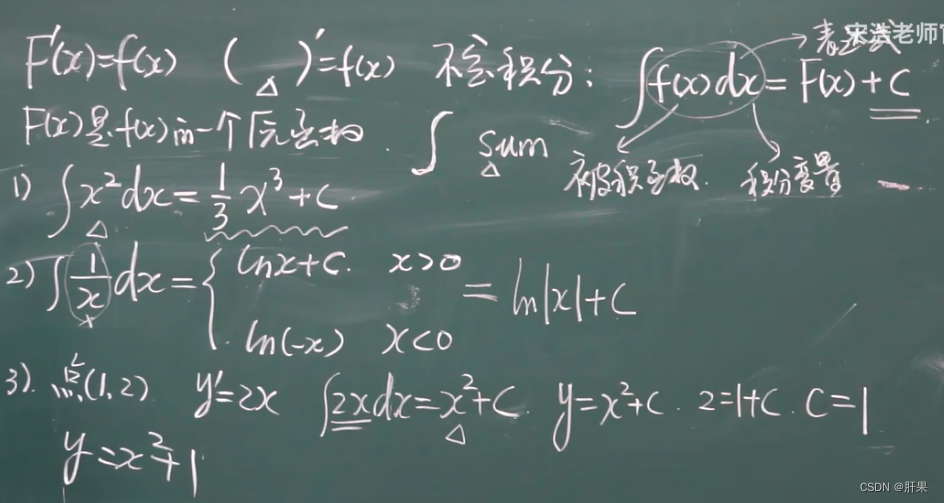 宋浩老师官
F'(x)=f(x) ( )'=f(x) 不定积分: ∫f(x)dx=F(x)+C 表达式
F(x)是f(x)的一个原函数. ∫ sum 被积函数. 积分变量
1) ∫x²dx=1/3 x³+C
2) ∫1/x dx={ lnx+C. x>0
ln(-x) x<0 =ln|x|+C
3). 点(1,2) y'=2x ∫2xdx=x²+C. y=x²+C. 2=1+C. C=1
y=x²+1
CSDN @肝果